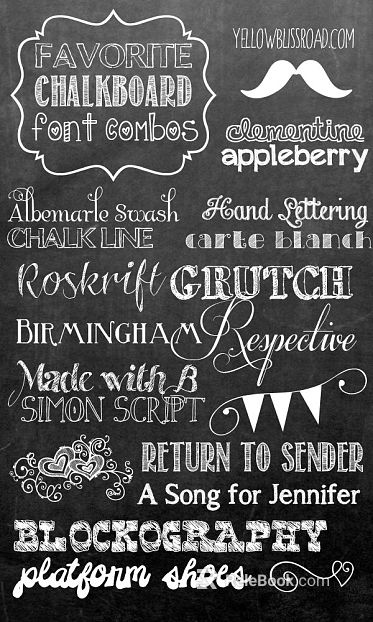 FAVORITE
CHALKBOARD
font combos
YELLOWBLISSROAD.COM
clementine
appleberry
Albemarle Swash
CHALK LINE
Hand Lettering
carte blanch
Roskrift GRUTCH
BIRMINGHAM Respective
Made with B
SIMON SCRIPT
RETURN TO SENDER
A Song for Jennifer
BLOCKOGRAPHY
platform shoes